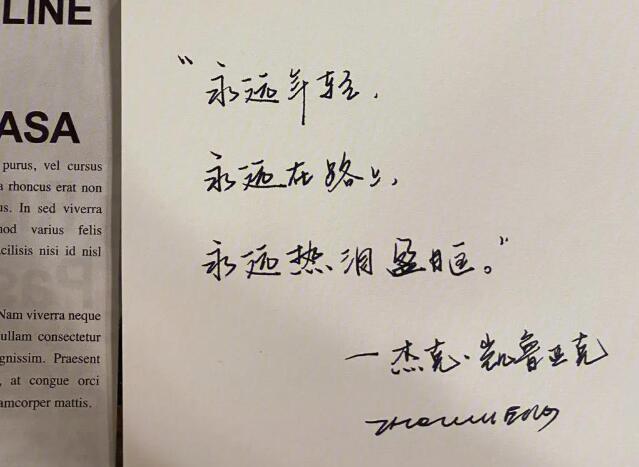 LINE
ASA
purus, vel cursus
rhoncus erat non
us. In sed viverra
mod varius felis
cilisis nisi id nisl
Nam viverra neque
ullam consectetur
gnissim. Praesent
, at congue orci
amcorper mattis.
“永远年轻,
永远在路上,
永远热泪盈眶。”
一杰克·凯鲁亚克